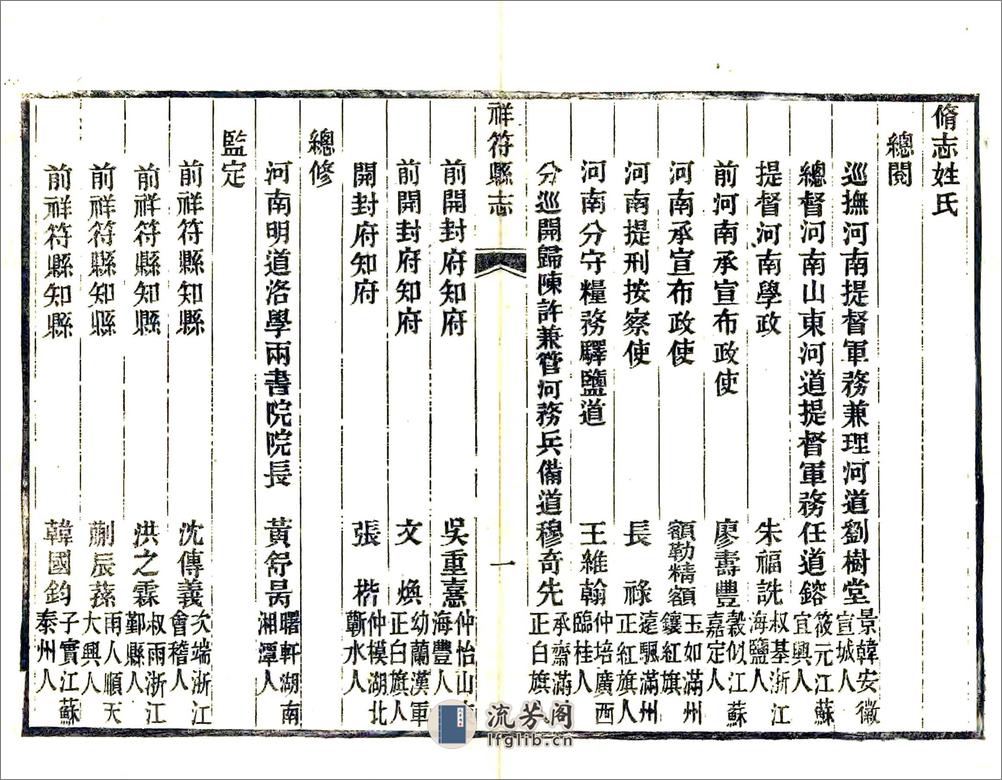 脩志姓氏
總閱
巡撫河南提督軍務兼理河道劉樹堂景韓安徽宣城人
總督河南山東河道提督軍務任道鎔筱元江蘇宜興人
提督河南學政 朱福詵叔基浙江海鹽人
前河南承宣布政使 廖壽豐縠似江蘇嘉定人
河南承宣布政使 額勒精額玉如滿州鑲紅旗
河南提刑按察使 長祿遠驪滿州正紅旗人
河南分守糧務驛鹽道 王維翰仲培廣西臨桂人
分巡開歸陳許兼管河務兵備道穆奇先承齋滿正白旗
祥符縣志 一
前開封府知府 吳重憙仲怡山海豐人
前開封府知府 文煥幼蘭漢軍正白旗人
開封府知府 張楷仲模湖北蘄水人
總修
河南明道洛學兩書院院長 黃舒昺曙軒湖南湘潭人
監定
前祥符縣知縣 沈傳義次端浙江會稽人
前祥符縣知縣 洪之霖叔雨浙江鄞縣人
前祥符縣知縣 蒯辰蓀雨人順天大興人
前祥符縣知縣 韓國鈞子實江蘇泰州人
流芳阁
lfglib.cn